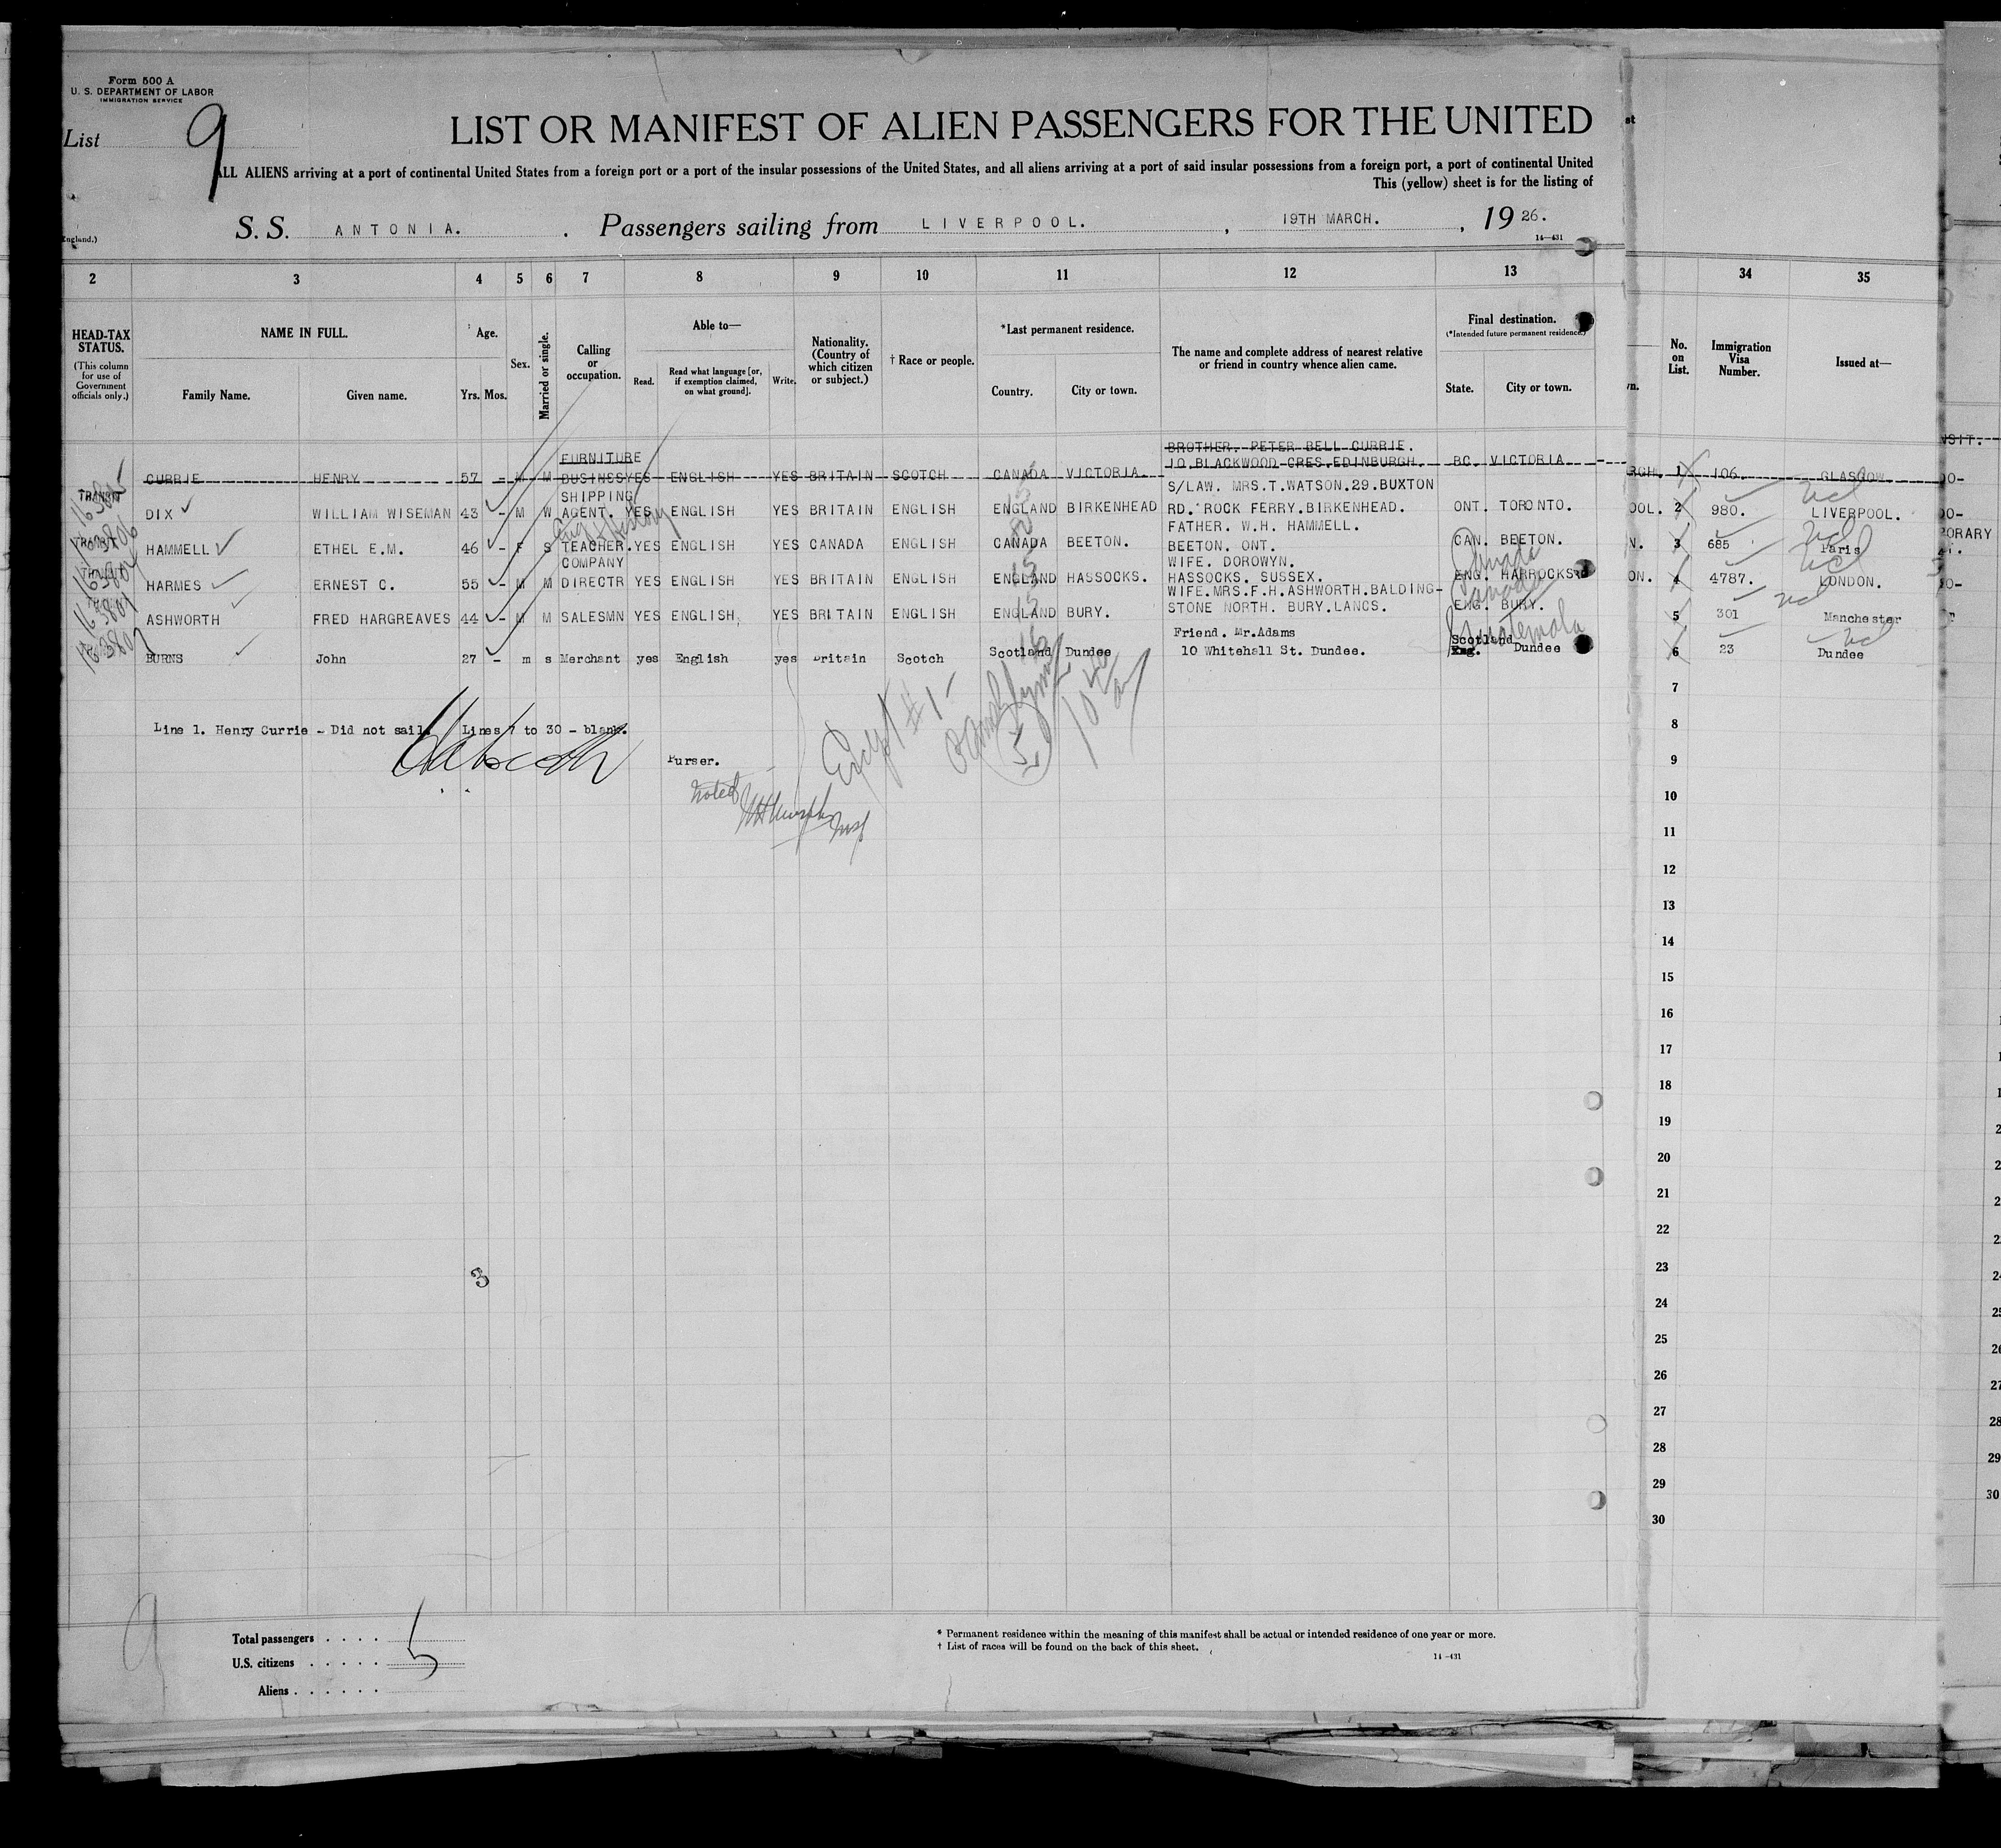 Form 500 A
U. S. DEPARTMENT OF LABOR
IMMIGRATION SERVICE
List 9
LIST OR MANIFEST OF ALIEN PASSENGERS FOR THE UNITED
ALL ALIENS arriving at a port of continental United States from a foreign port or a port of the insular possessions of the United States, and all aliens arriving at a port of said insular possessions from a foreign port, a port of continental United
This (yellow) sheet is for the listing of
S. S. ANTONIA. Passengers sailing from LIVERPOOL. , 19TH MARCH. , 1926.
England.)
14—431
2 3 4 5 6 7 8 9 10 11 12 13 34 35
HEAD-TAX STATUS. (This column for use of Government officials only.)
NAME IN FULL.
Family Name. Given name.
Age.
Yrs. Mos.
Sex.
Married or single.
Calling or occupation.
Able to—
Read. Read what language [or, if exemption claimed, on what ground]. Write.
Nationality. (Country of which citizen or subject.)
† Race or people.
*Last permanent residence.
Country. City or town.
The name and complete address of nearest relative or friend in country whence alien came.
Final destination.
(*Intended future permanent residence.)
State. City or town.
No. on List.
Immigration Visa Number.
Issued at—
CURRIE HENRY 57 - M M FURNITURE BUSINES YES ENGLISH YES BRITAIN SCOTCH CANADA VICTORIA. BROTHER. PETER BELL CURRIE. 10.BLACKWOOD CRES.EDINBURGH. BC. VICTORIA RGH. 1 106. GLASGOW
TRANSIT DIX WILLIAM WISEMAN 43 - M W SHIPPING AGENT. YES ENGLISH YES BRITAIN ENGLISH ENGLAND BIRKENHEAD S/LAW. MRS.T.WATSON.29.BUXTON RD. ROCK FERRY.BIRKENHEAD. ONT. TORONTO. OOL. 2 980. LIVERPOOL.
HAMMELL ETHEL E.M. 46 - F S TEACHER. Eng & History YES ENGLISH YES CANADA ENGLISH CANADA BEETON. FATHER. W.H. HAMMELL. BEETON. ONT. CAN. BEETON. N. 3 685 Paris
HARMES ERNEST C. 55 - M M COMPANY DIRECTR YES ENGLISH YES BRITAIN ENGLISH ENGLAND HASSOCKS. WIFE. DOROWYN. HASSOCKS. SUSSEX. ENG. HARROCKS Canada ON. 4 4787. LONDON.
ASHWORTH FRED HARGREAVES 44 - M M SALESMN YES ENGLISH. YES BRITAIN ENGLISH ENGLAND BURY. WIFE.MRS.F.H.ASHWORTH.BALDING-STONE NORTH. BURY.LANCS. ENG. BURY. Canada 5 301 Manchester
BURNS John 27 - m s Merchant yes English yes Britain Scotch Scotland Dundee Friend. Mr.Adams 10 Whitehall St. Dundee. Scotland Eng. Dundee Guatemala 6 23 Dundee
7
Line 1. Henry Currie - Did not sail. Lines 7 to 30 - blank.
8
Purser.
9
Noted
10
11
12
13
14
15
16
17
18
19
20
21
22
3
23
24
25
26
27
28
29
30
Total passengers . . . . 5
U.S. citizens . . . . .
Aliens . . . . . .
9
* Permanent residence within the meaning of this manifest shall be actual or intended residence of one year or more.
† List of races will be found on the back of this sheet.
14—431